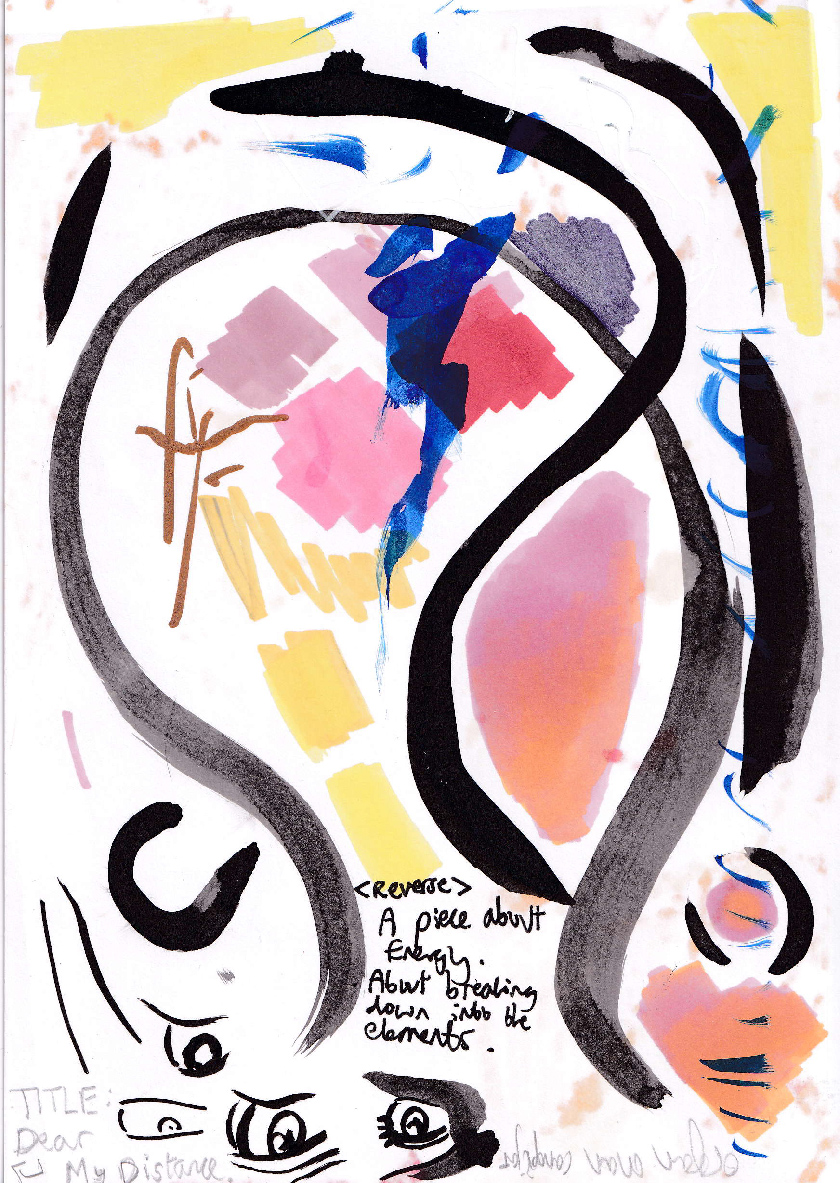 <Reverse>
A piece about
Energy.
About breaking
down into the
elements.
TITLE:
Dear
My Distance.